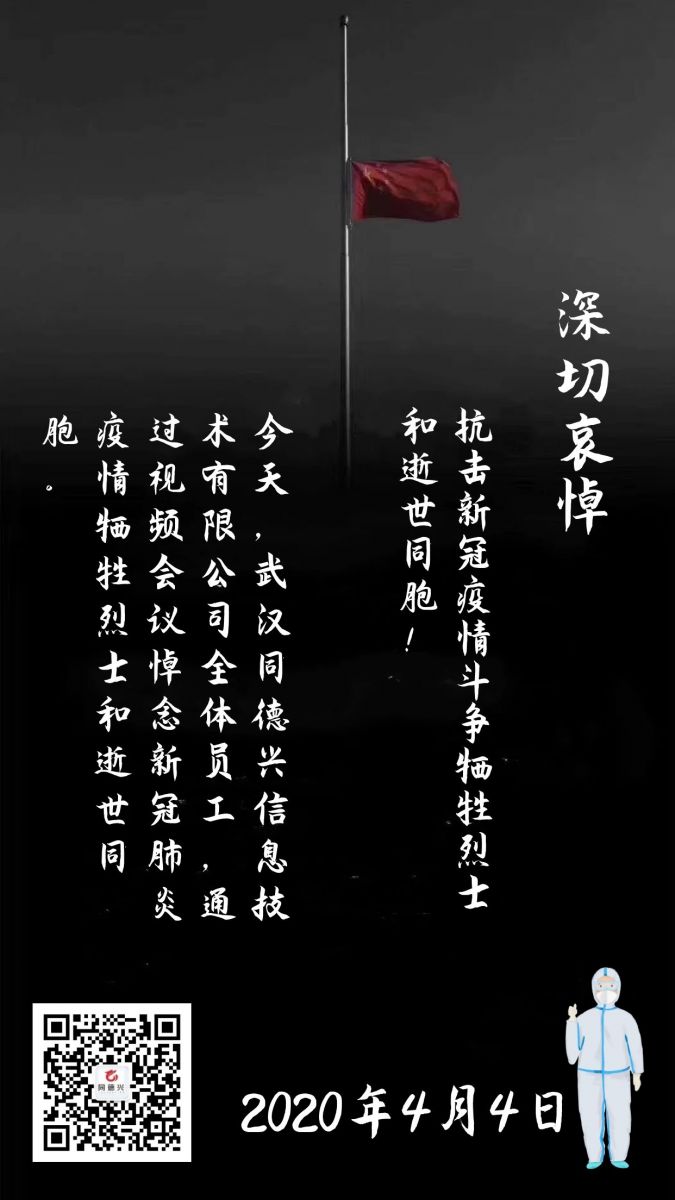 深切哀悼
抗击新冠疫情斗争牺牲烈士
和逝世同胞！
今天，武汉同德兴信息技
术有限公司全体员工，通
过视频会议悼念新冠肺炎
疫情牺牲烈士和逝世同
胞。
同德兴
2020年4月4日